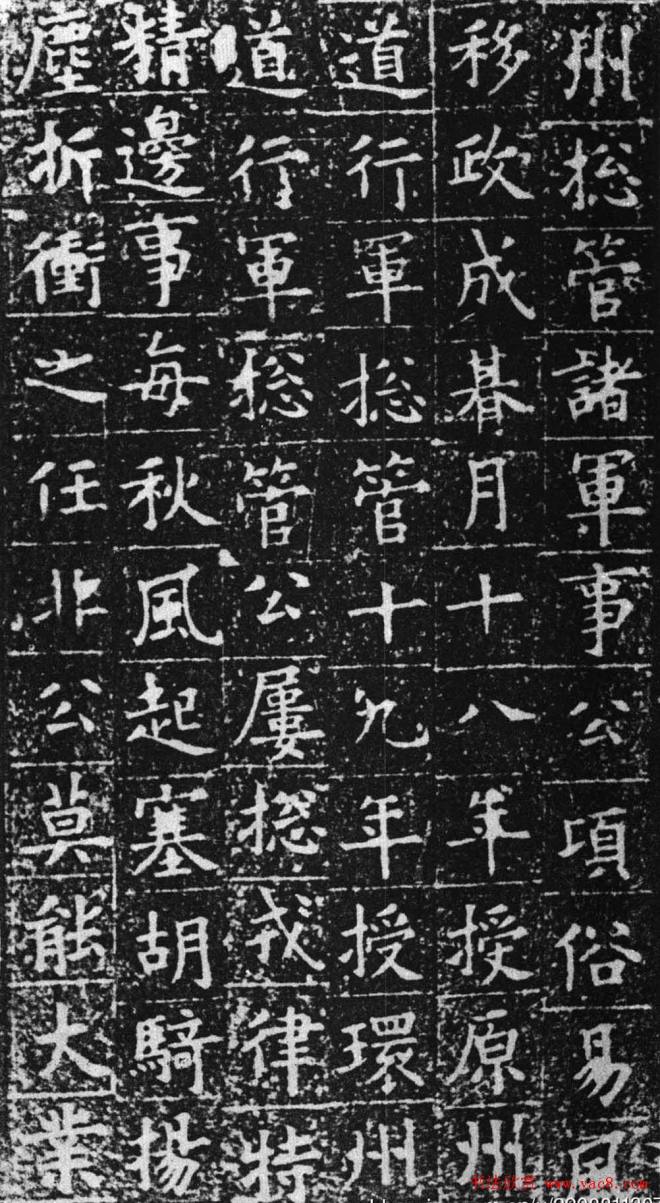 州揔管諸軍事公頃俗易風
移政成朞月十八年授原州
道行軍揔管十九年授環州
道行軍揔管公屢揔戎律特
猜邊事每秋風起塞胡騎揚
塵折衝之任非公莫能大業
书法欣赏 www.yac8.com